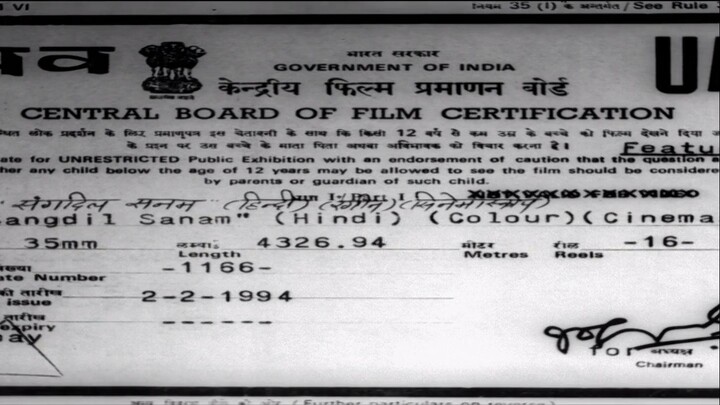 VI 35 (I) / See Rule
भारत सरकार
GOVERNMENT OF INDIA
केन्द्रीय फिल्म प्रमाणन बोर्ड
CENTRAL BOARD OF FILM CERTIFICATION
लोक प्रदर्शन के लिए प्रमाणपत्र इस चेतावनी के साथ कि किसी 12 वर्ष से कम उम्र के बच्चे को फिल्म देखने दिया
के प्रश्न पर उस बच्चे के माता पिता अथवा अभिभावक को विचार करना है। Featu
ate for UNRESTRICTED Public Exhibition with an endorsement of caution that the question
her any child below the age of 12 years may be allowed to see the film should be considere
by parents or guardian of such child.
संगदिल सनम (हिन्दी) (रंगीन) (सिनेमास्कोप)
angdil Sanam" (Hindi) (Colour) (Cinema
35mm लम्बाई 4326.94 मीटर रील -16-
Length Metres Reels
-1166-
te Number
की तारीख 2-2-1994
issue
तारीख ------
expiry
ay
for अध्यक्ष
Chairman
(Further particulars on reverse)